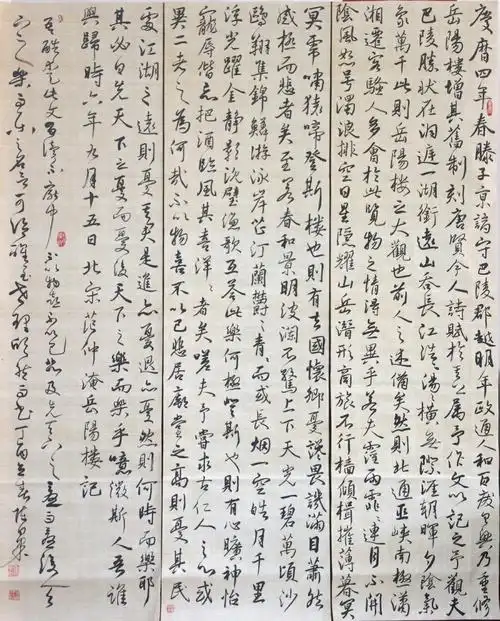 慶曆四年春滕子京謫守巴陵郡越明年政通人和百廢具興乃重修
岳陽樓增其舊制刻唐賢今人詩賦於其上屬予作文以記之予觀夫
巴陵勝狀在洞庭一湖銜遠山吞長江浩浩湯湯橫無際涯朝暉夕陰氣
象萬千此則岳陽樓之大觀也前人之述備矣然則北通巫峽南極瀟
湘遷客騷人多會於此覽物之情得無異乎若夫霪雨霏霏連月不開
陰風怒号濁浪排空日星隱耀山岳潛形商旅不行檣傾楫摧薄暮冥
冥虎嘯猿啼登斯樓也則有去國懷鄉憂讒畏譏滿目蕭然
感極而悲者矣至若春和景明波瀾不驚上下天光一碧萬頃沙
鷗翔集錦鱗游泳岸芷汀蘭鬱鬱青青而或長烟一空皓月千里
浮光躍金靜影沉璧漁歌互答此樂何極登斯樓也則有心曠神怡
寵辱偕忘把酒臨風其喜洋洋者矣嗟夫予嘗求古仁人之心或
異二者之為何哉不以物喜不以己悲居廟堂之高則憂其民
處江湖之遠則憂其君是進亦憂退亦憂然則何時而樂耶
其必曰先天下之憂而憂後天下之樂而樂乎噫微斯人吾誰
與歸時六年九月十五日北宋范仲淹岳陽樓記